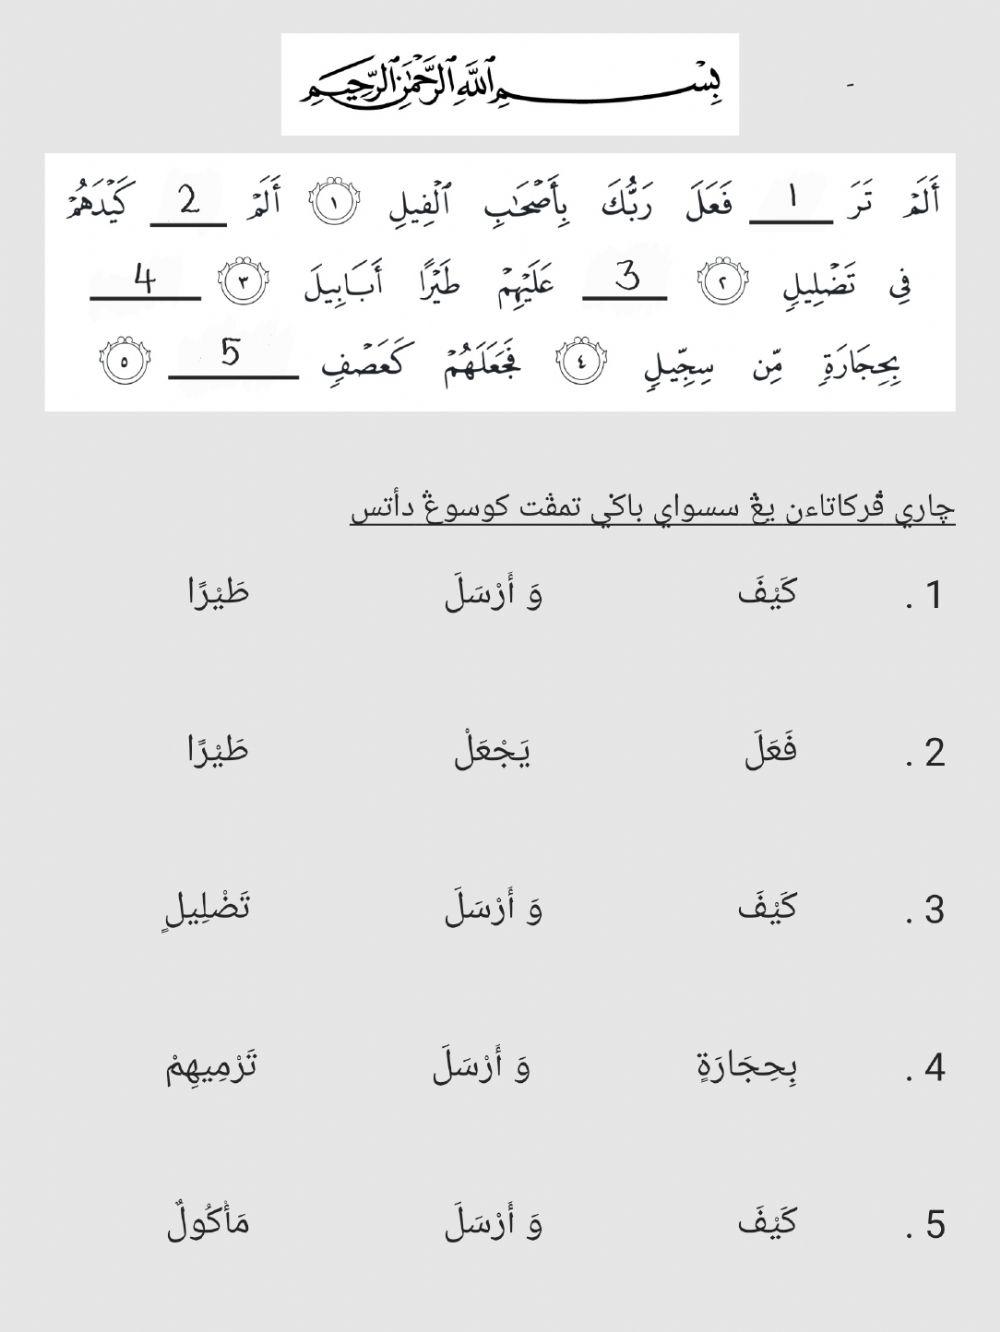 بِسْمِ ٱللَّهِ ٱلرَّحْمَٰنِ ٱلرَّحِيمِ
أَلَمْ تَرَ 1 فَعَلَ رَبُّكَ بِأَصْحَٰبِ ٱلْفِيلِ ١ أَلَمْ 2 كَيْدَهُمْ
فِى تَضْلِيلٍ ٢ 3 عَلَيْهِمْ طَيْرًا أَبَابِيلَ ٣ 4
بِحِجَارَةٍ مِّن سِجِّيلٍ ٤ فَجَعَلَهُمْ كَعَصْفٍ 5 ٥
چاري ڤركاتاءن يڠ سسواي باݢي تمڤت كوسوڠ دأتس
1 . كَيْفَ وَ أَرْسَلَ طَيْرًا
2 . فَعَلَ يَجْعَلْ طَيْرًا
3 . كَيْفَ وَ أَرْسَلَ تَضْلِيلٍ
4 . بِحِجَارَةٍ وَ أَرْسَلَ تَرْمِيهِمْ
5 . كَيْفَ وَ أَرْسَلَ مَأْكُولٌ